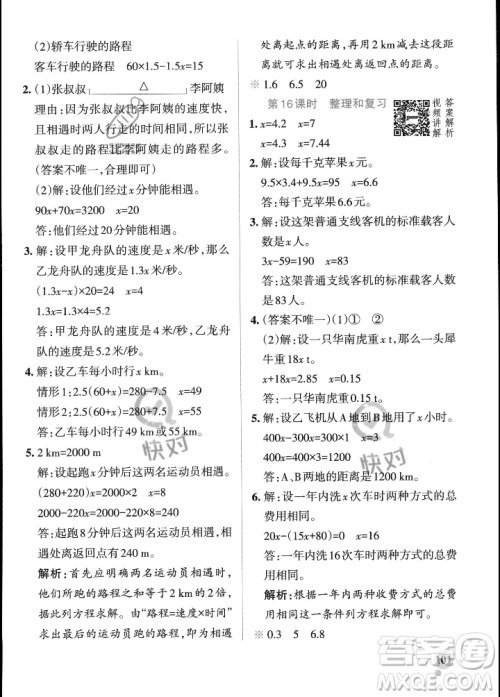 (2)轿车行驶的路程
客车行驶的路程 60×1.5-1.5x=15
2. (1)张叔叔 △ 李阿姨
理由：因为张叔叔比李阿姨的速度快，
且相遇时两人行走的时间相同，所以张
叔叔走的路程比李阿姨走的路程多。
(答案不唯一，合理即可)
(2)解：设他们经过x分钟能相遇。
90x+70x=3200 x=20
答：他们经过20分钟能相遇。
3. 解：设甲龙舟队的速度是x米/秒，那么
乙龙舟队的速度是1.3x米/秒。
(1.3x-x)×20=24 x=4
1.3x=1.3×4=5.2
答：甲龙舟队的速度是4米/秒，乙龙舟
队的速度是5.2米/秒。
4. 解：设乙车每小时行x km。
情形1：2.5(60+x)=280-7.5 x=49
情形2：2.5(60+x)=280+7.5 x=55
答：乙车每小时行49 km或55 km。
5. 2 km=2000 m
解：设起跑x分钟后这两名运动员相遇。
(280+220)x=2000×2 x=8
2000-220x=2000-220×8=240
答：起跑8分钟后这两名运动员相遇，相
遇处离返回点有240 m。
解析：首先应明确两名运动员相遇时，他
们所跑的路程之和等于2个2 km的路
程，据此列方程求解。由“路程=速度×时间”
可求出最后的女运动员跑的路程，它与相遇
处离起点的距离，再用2 km减去
这个距离就是相遇处离返回点的距离。
※ 1.6 6.5 20
第16课时 整理和复习
视频讲解
答案解析
1. x=4.2 x=7
x=4.3 x=7.44
2. 解：设每千克苹果x元。
9.5×3.4+5x=65.3 x=6.6
答：每千克苹果6.6元。
3. 解：设这架普通支线客机的标准载客人
数是x人。
3x-59=190 x=83
答：这架普通支线客机的标准载客人数
是83人。
4. (答案不唯一)(1)① ②
(2)解：设一只华南虎重x t，那么一头犀
牛重18x t。
x+18x=2.85 x=0.15
答：一只华南虎重0.15 t。
5. 解：设乙飞机从A地到B地用了x小时。
400x-300x=300×1 x=3
400x=400×3=1200
答：A、B两地的距离是1200 km。
6. 解：设一年内洗x次车时两种方式的总
费用相同。
20x-(15x+80)=0 x=16
答：一年内洗16次车时两种方式的总费
用相同。
解析：根据“一年内两种收费方式的总费
用相同”这一条件列方程求解即可。
※ 0.3 5 6.8
快对
快对
答案圈
MXQE.COM
101